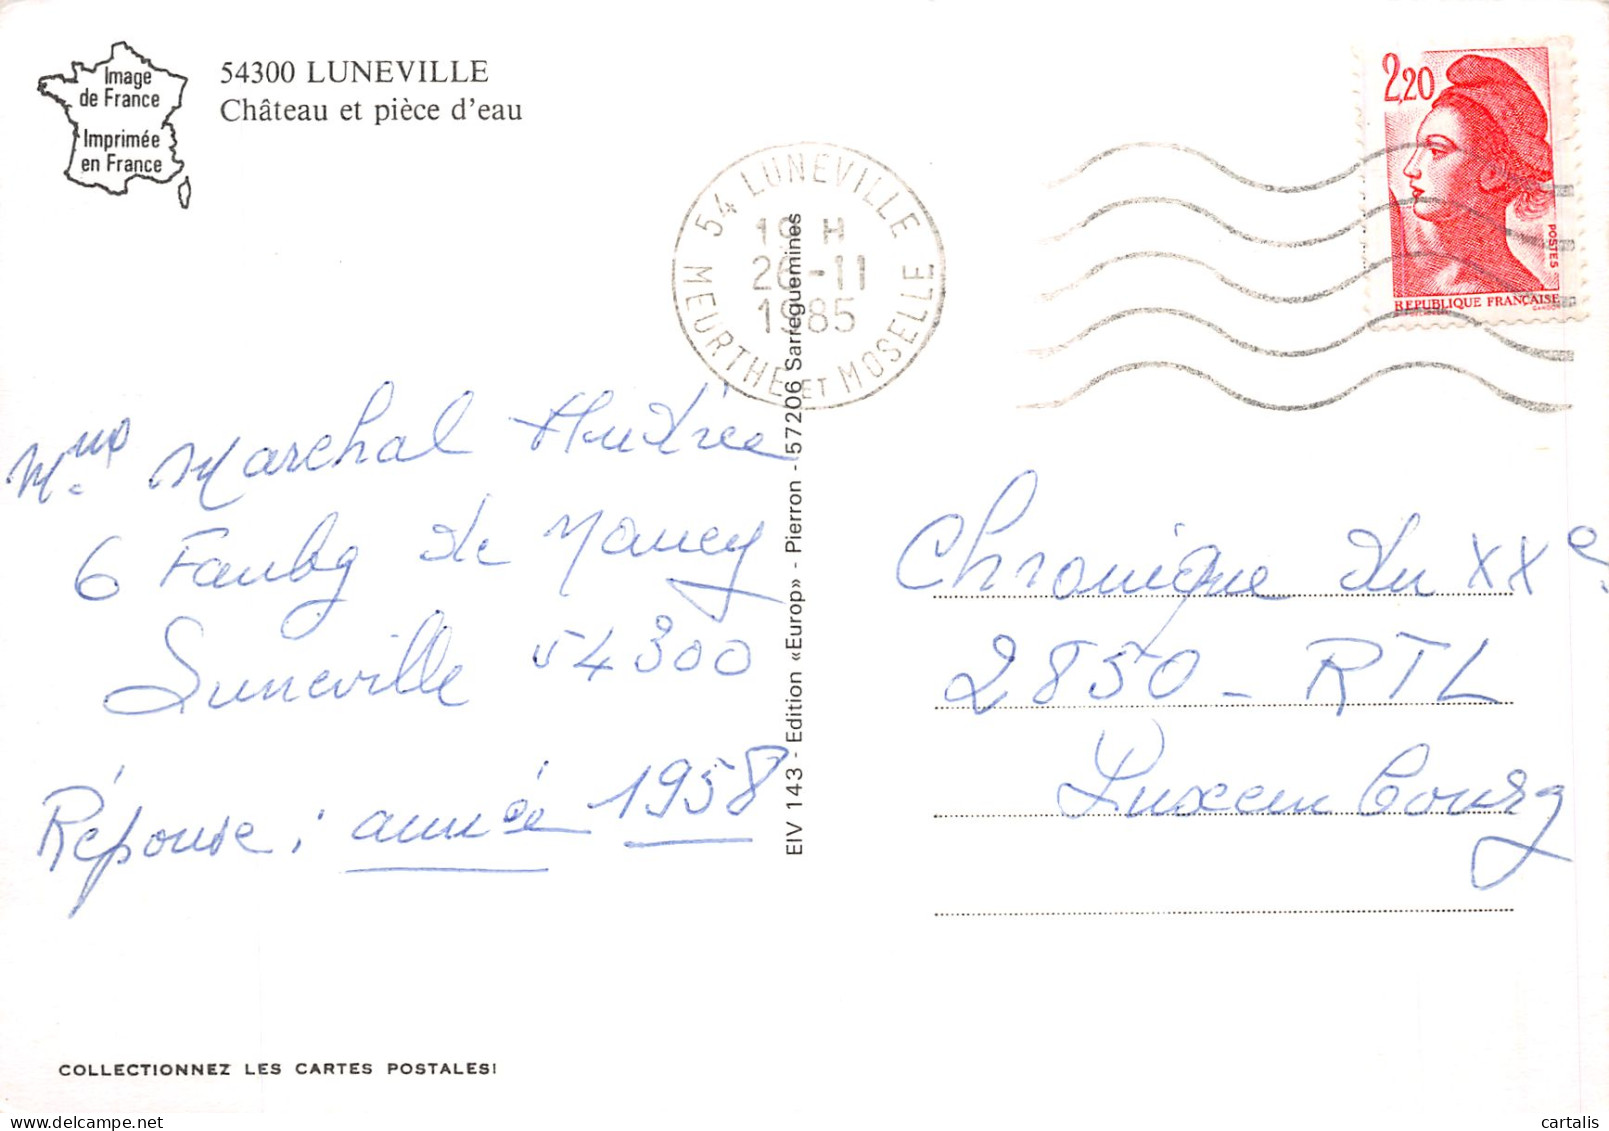 Image
de France
Imprimée
en France
54300 LUNEVILLE
Château et pièce d'eau
54 LUNEVILLE
19 H
26-11
1985
MEURTHE ET MOSELLE
2,20
POSTES
REPUBLIQUE FRANÇAISE
Marchal
6 Faubg de Nancy
Luneville 54300
Réponse : année 1958
EIV 143 - Edition «Europ» - Pierron - 57206 Sarreguemines
Chronique du XXe
2850 - RTL
Luxembourg
COLLECTIONNEZ LES CARTES POSTALES!
cartalis